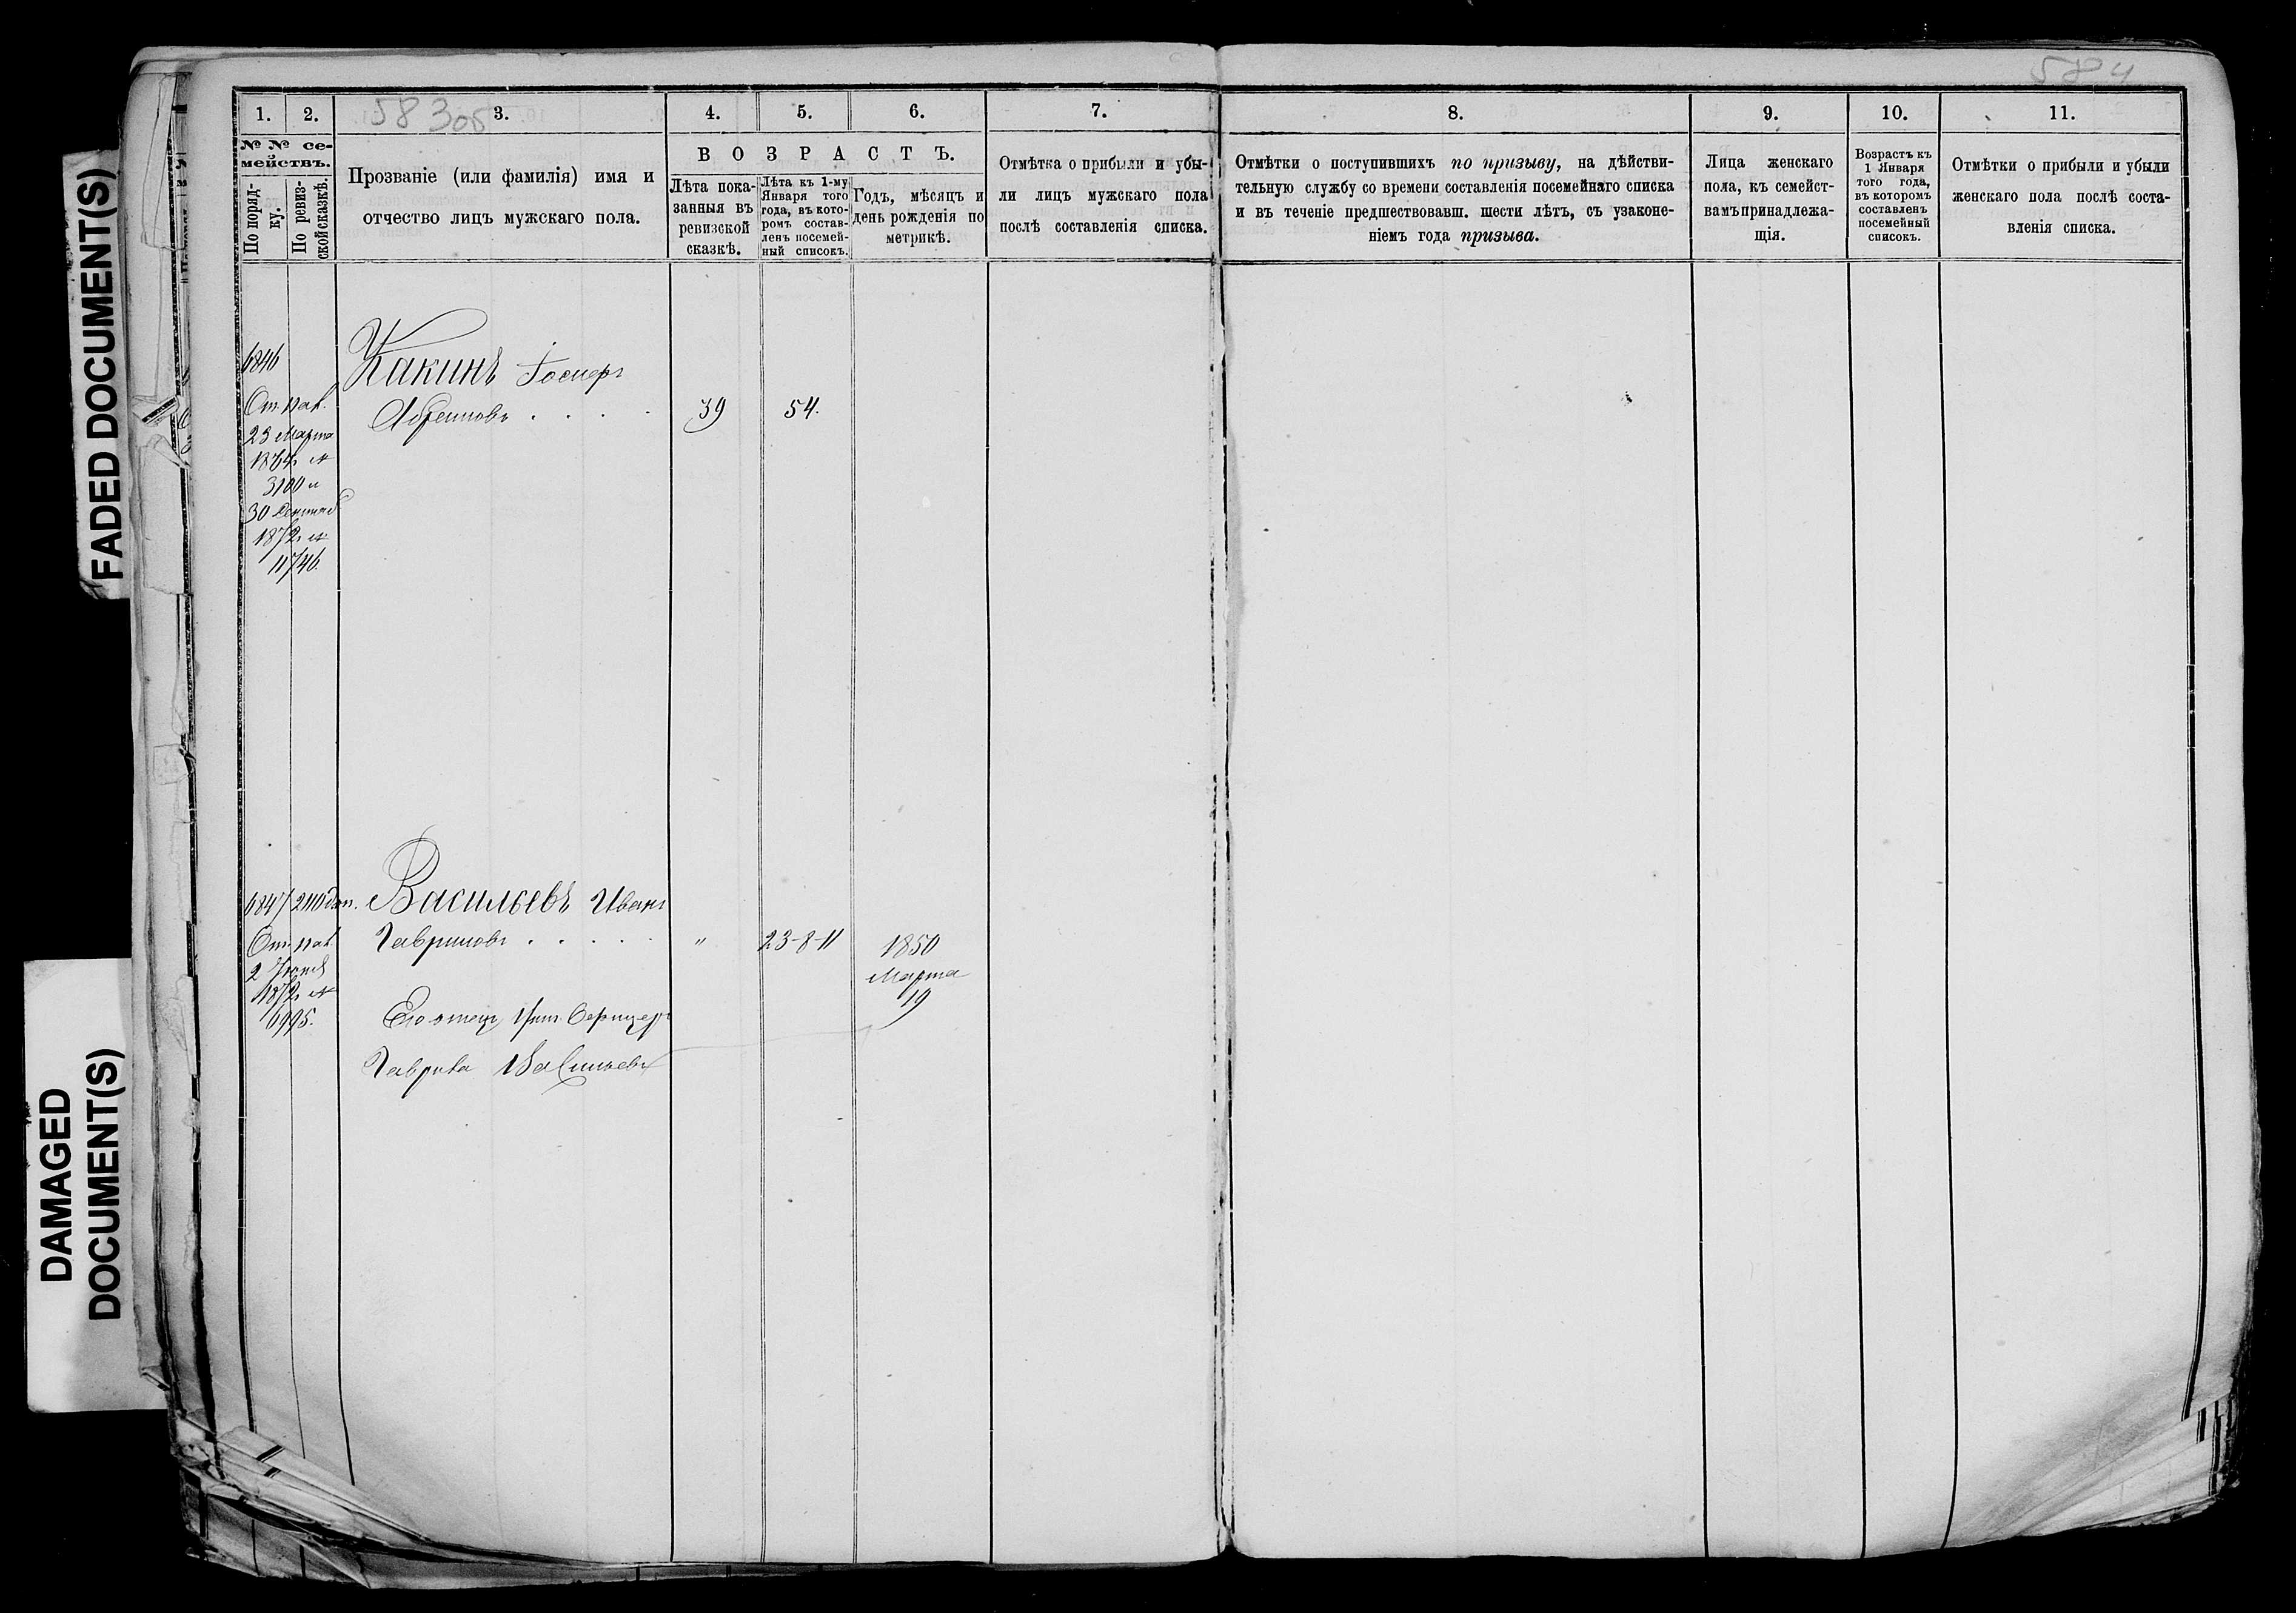 FADED DOCUMENT(S)
DAMAGED
DOCUMENT(S)
584
1.
2.
3.
4.
5.
6.
7.
8.
9.
10.
11.
№ № се-
мействъ.
По поряд-
ку.
По ревиз-
ской сказкѣ.
Прозваніе (или фамилія) имя и
отчество лицъ мужскаго пола.
В О З Р А С Т Ъ.
Лѣта пока-
занныя въ
ревизской
сказкѣ.
Лѣта къ 1-му
Января того
года, въ кото-
ромъ состав-
ленъ посемей-
ный списокъ.
Годъ, мѣсяцъ и
день рожденія по
метрикѣ.
Отмѣтка о прибыли и убы-
ли лицъ мужскаго пола
послѣ составленія списка.
Отмѣтки о поступившихъ по призыву, на дѣйстви-
тельную службу со времени составленія посемейнаго списка
и въ теченіе предшествовавш. шести лѣтъ, съ узаконе-
ніемъ года призыва.
Лица женскаго
пола, къ семейст-
вамъ принадлежа-
щія.
Возрастъ къ
1 Января
того года,
въ которомъ
составленъ
посемейный
списокъ.
Отмѣтки о прибыли и убыли
женскаго пола послѣ соста-
вленія списка.
6846
Какинъ
39
54.
23 Марта
3100 и
30
1872г №
11746.
6847
2110 доп.
Васильевъ Иванъ
Гавриловъ . . . . .
"
23-8-11
1850
Марта
19
2
1872г №
6995.
Его отецъ
Гаврила Васильевъ